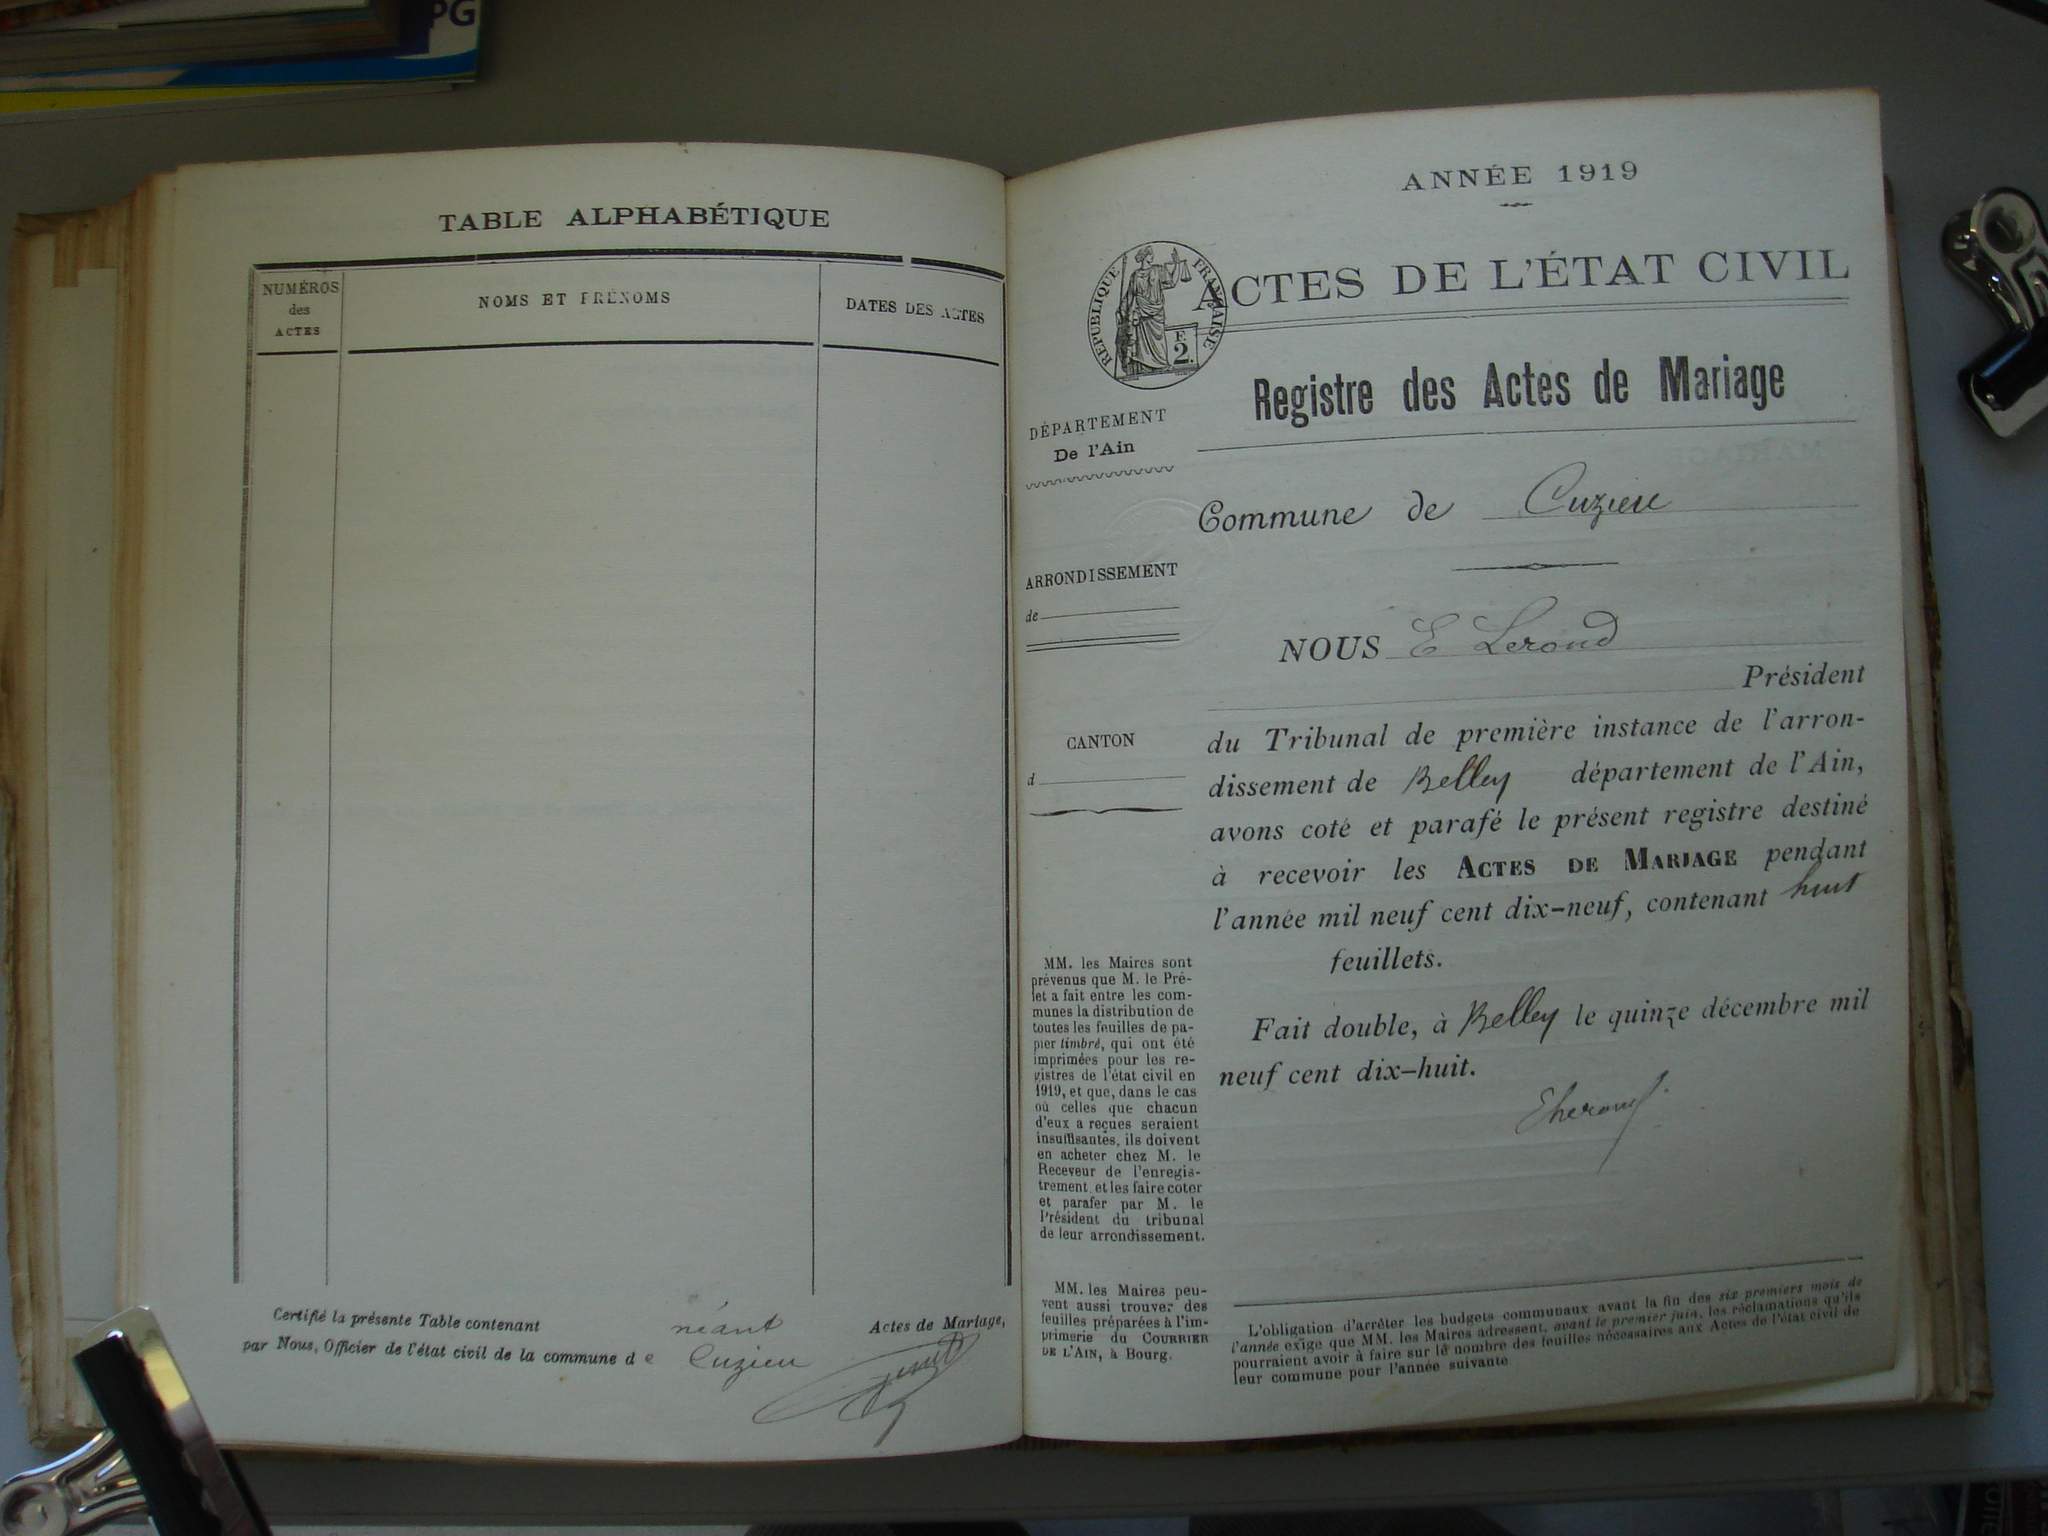 PG
TABLE ALPHABÉTIQUE
NUMÉROS
des
ACTES
NOMS ET PRÉNOMS
DATES DES ACTES
Certifié la présente Table contenant néant Actes de Mariage,
par Nous, Officier de l'état civil de la commune de Cuzieu
ANNÉE 1919
ACTES DE L'ÉTAT CIVIL
RÉPUBLIQUE FRANÇAISE
F.
2.
Registre des Actes de Mariage
DÉPARTEMENT
De l'Ain
Commune de Cuzieu
ARRONDISSEMENT
de
NOUS E Lerond
Président
CANTON
d
du Tribunal de première instance de l'arron-
dissement de Belley département de l'Ain,
avons coté et parafé le présent registre destiné
à recevoir les ACTES DE MARIAGE pendant
l'année mil neuf cent dix-neuf, contenant huit
feuillets.
Fait double, à Belley le quinze décembre mil
neuf cent dix-huit.
MM. les Maires sont
prévenus que M. le Pré-
fet a fait entre les com-
munes la distribution de
toutes les feuilles de pa-
pier timbré, qui ont été
imprimées pour les re-
gistres de l'état civil en
1919, et que, dans le cas
où celles que chacun
d'eux a reçues seraient
insuffisantes, ils doivent
en acheter chez M. le
Receveur de l'enregis-
trement, et les faire coter
et parafer par M. le
Président du tribunal
de leur arrondissement.
MM. les Maires peu-
vent aussi trouver des
feuilles préparées à l'im-
primerie du COURRIER
DE L'AIN, à Bourg.
L'obligation d'arrêter les budgets communaux avant la fin des six premiers mois de
l'année exige que MM. les Maires adressent, avant le premier juin, les réclamations qu'ils
pourraient avoir à faire sur le nombre des feuilles nécessaires aux Actes de l'état civil de
leur commune pour l'année suivante